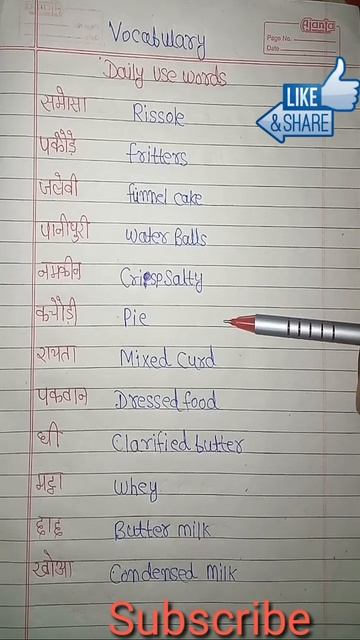 Ajanta
Page No.
Date
Vocabulary
Daily use words
LIKE
& SHARE
समोसा Rissole
पकौड़े fritters
जलेवी funnel cake
पानीपुरी Water Balls
नमकीन CrispSalty
कचौड़ी Pie
रायता Mixed Curd
पकवान Dressed food
घी Clarified butter
मट्ठा Whey
छाछ Butter milk
खोआ Condensed Milk
Subscribe